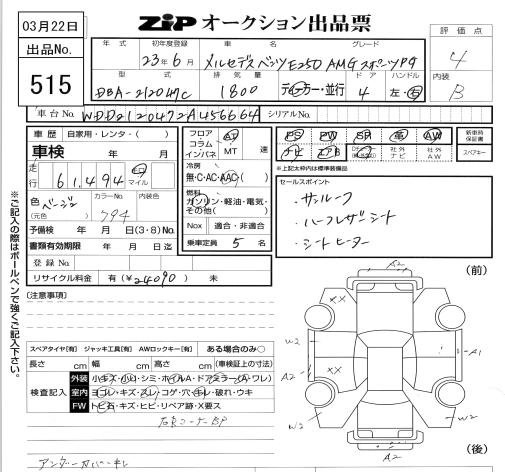 03月22日
出品No.
515
ZIP オークション出品票
評価点
4
内装
B
年式 初年度登録 車名 グレード
23年6月 メルセデスベンツE250 AMGスポーツPG
型式 排気量 ドア ハンドル
DBA-212047C 1800 ディーラー・並行 4 左・右
車台No. WDD2120472A456664 シリアルNo.
車歴 自家用・レンタ・( )
車検 年 月
走行 61,494 キロ マイル
色 ベージュ カラーNo. 794
(元色)
予備検 年 月 日(3・8)モデル
書類有効期限 年 月 日
登録No.
リサイクル料金 有(¥24090) 未
フロア コラム インパネ AT MT 速
冷房
無・C・AC・AAC( )
燃料
ガソリン・軽油・電気・その他( )
Nox 適合・非適合
乗車定員 5 名
PS PW SR 革 AW
ナビ エアB 社外ナビ 社外AW
新車時保証書
スペアキー
*上記太枠内は標準装備品
セールスポイント
・サンルーフ
・ハーフレザーシート
・シートヒーター
※ご記入の際はボールペンで強くご記入下さい。
(注意事項)
スペアタイヤ[有] ジャッキ工具[有] AWロックキー[有] ある場合のみ○
長さ cm 幅 cm 高さ cm (車検証上の寸法)
検査記入
外装 小キズ・小凹・シミ・ホイルA・ドアミラー(A・ワレ)
室内 ヨゴレ・キズ・スレ・コゲ・穴・キレ・破れ・ウキ
FW トビ石・キズ・ヒビ・リペア跡・X要ス
右リコーナーBP
アンダーカバーキレ
(前)
A2
XX
W2
A2
XX
A1
W2
W2
A2
(後)